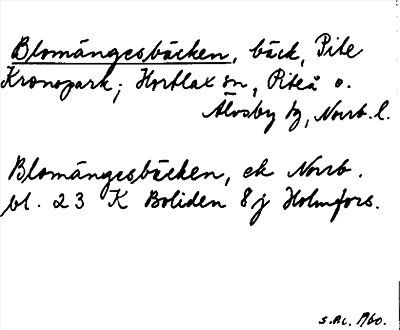 Blomängesbäcken, bäck, Pite
Kronopark; Hortlax sn, Piteå o.
Älvsby tg, Norrb. l.
Blomängesbäcken, ek Norrb.
bl. 23 K Boliden 8j Holmfors.
1960.